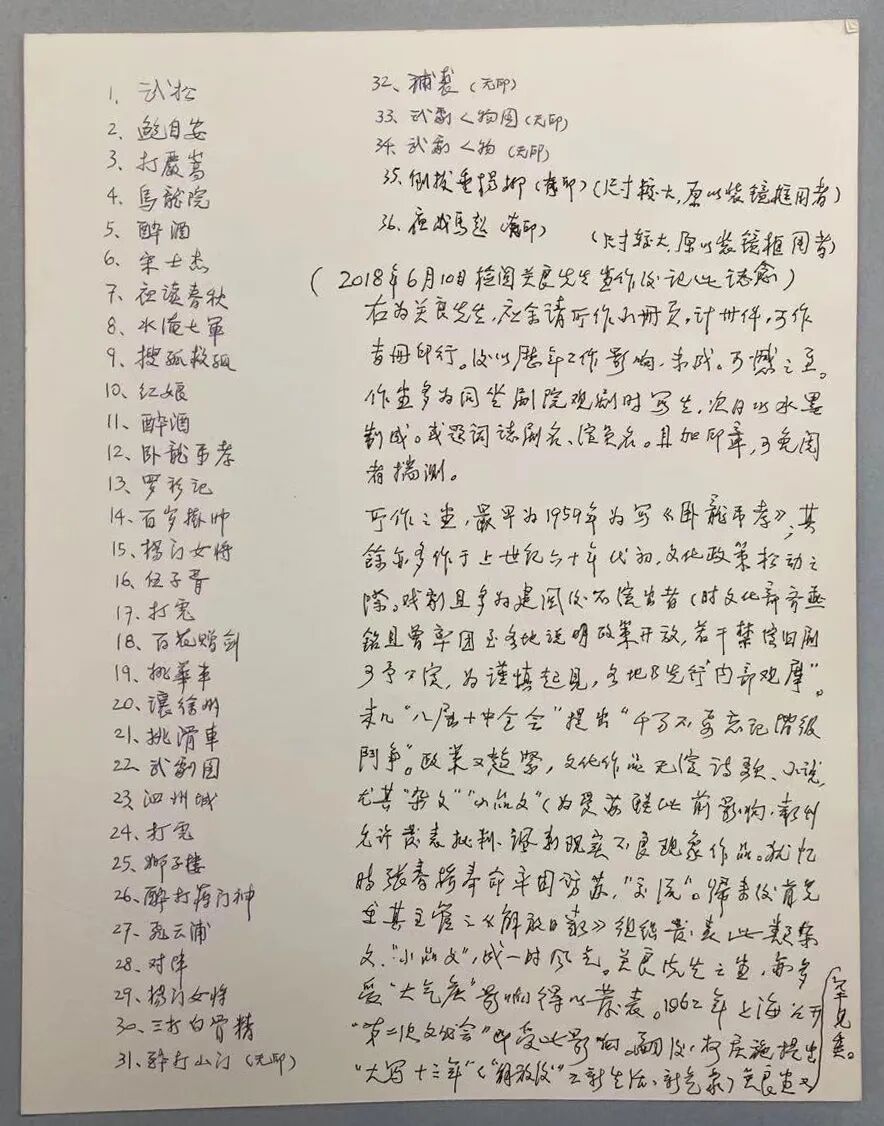 1、武松
2、鲍自安
3、打嚴嵩
4、烏龍院
5、醉酒
6、宋士杰
7、夜读春秋
8、水淹七軍
9、搜孤救孤
10、红娘
11、醉酒
12、卧龍吊孝
13、罗衫记
14、百岁掛帅
15、楊门女将
16、伍子胥
17、打兎
18、百花赠剑
19、挑華车
20、讓徐州
21、挑滑車
22、武劇图
23、泗州城
24、打兎
25、獅子楼
26、醉打蒋门神
27、飛云浦
28、对阵
29、楊门女将
30、三打白骨精
31、醉打山门（无印）
32、（无印）
33、武劇人物图（无印）
34、武劇人物（无印）
35、倒拔垂楊柳（有印）（尺寸较大，原以装镜框用者）
36、夜战馬超（有印）（尺寸较大，原以装镜框用者）
（2018年6月10日检阅关良先生画作后记此誌念）
右为关良先生，应余请所作小册页，计卅件，可作
专册印行。后以历年工作影响，未成。可憾之至。
作画多为同坐劇院观劇时写生，次日以水墨
制成。或题词誌劇名、演员名。且加印章，可免阅
者揣测。
所作之画，最早为1959年为写《卧龍吊孝》；其
餘亦多作于上世纪六十年代初，文化政策松动之
际。戏劇且多为建国后不演出者（时文化部齐燕
銘且曾率团至各地说明政策开放，若干禁演旧劇
可予公演，为谨慎起见，各地多先行“内部观摩”。
未几“八届十中全会”提出“千万不要忘记階級
鬥争”。政策又趋紧，文化作品无论诗歌、小说，
尤其“杂文”“小品文”（为受苏联此前影响，報刊
允许发表批判、讽刺现实不良现象作品。犹忆
时张春桥奉命率团访苏，“交流”。归来后首先
在其主管之《解放日報》组织发表此類杂
文、“小品文”，成一时风气。关良先生之画，亦多
受“大气候”影响得以发表。1962年上海召开
“第二次文代会”即受此影响。翻后，柯庆施提出
“大写十三年”（“解放后”之新生活、新气象）关良画又
罕见矣。